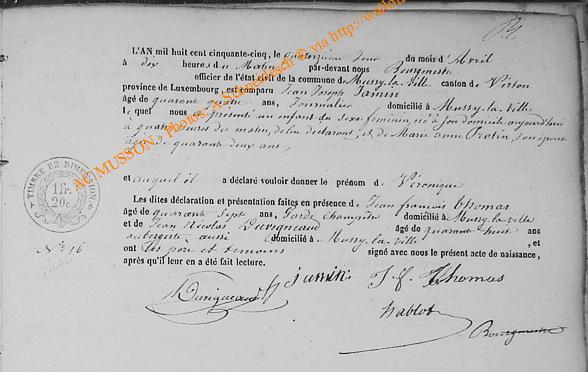 L'AN mil huit cent cinquante-cinq, le quatorzième jour du mois d'Avril
à dix heures du Matin par-devant nous Bourgmestre
officier de l'état civil de la commune de Mussy-la-ville canton de Virton
province de Luxembourg, est comparu Jean Joseph Jamin
âgé de quarante quatre ans, Journalier domicilié à Mussy-la-Ville
lequel nous a présenté un enfant du sexe féminin né à son domicile aujourdhui
à quatre heures du matin, de lui déclarant, et de Marie anne Protin, son épouse
agée de quarante deux ans,
et auquel il a déclaré vouloir donner le prénom de Véronique
Les dites déclaration et présentation faites en présence de Jean françois Thomas
âgé de quarante sept ans, Garde Champêtre domicilié à Mussy-la-ville
et de Jean Nicolas Duvigneaud âgé de quarante huit ans
aubergiste aussi domicilié à Mussy-la-ville, et
ont les père et témoins signé avec nous le présent acte de naissance,
après qu'il leur en a été fait lecture.
TIMBRE DE DIMENSION
1 fr.
20 c.
N° 16
Duvigneaud jamin J. f. Thomas
hablot
Bourgmestre
AC MUSSON - Photos A. Schoenbach © via http://wallon